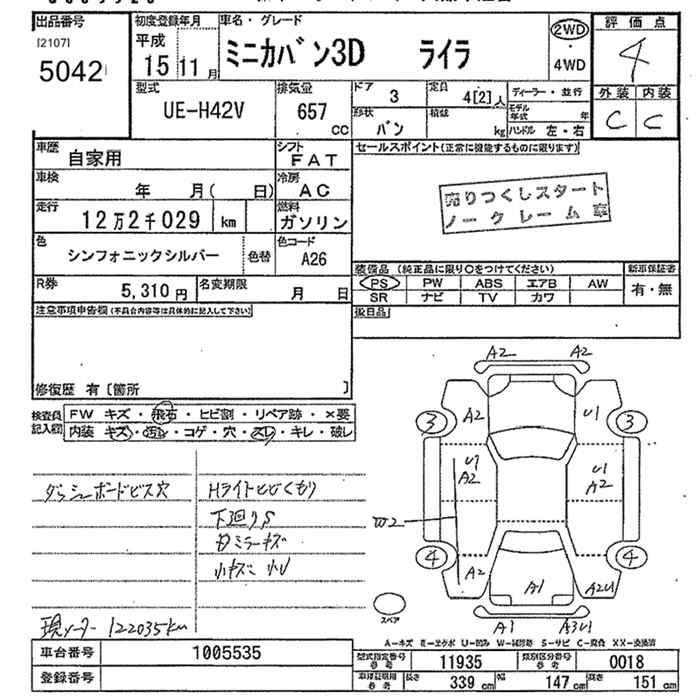 出品番号
[2107]
5042
初度登録年月
平成
15 11月
車名・グレード
ミニカバン3D ライラ
2WD
・
4WD
評価点
4
外装 内装
C C
型式
UE-H42V
排気量
657
CC
ドア
3
定員
4[2]人
ディーラー・並行
形状
バン
積載
kg
モデル年式 年
ハンドル 左・右
車歴
自家用
シフト
FAT
セールスポイント(正常に機能するものに限ります)
車検
年 月( 日)
冷房
AC
売りつくしスタート
ノークレーム車
走行
12万2千029 km
燃料
ガソリン
色
シンフォニックシルバー
色替
色コード
A26
装備品 (純正品に限り○をつけてください)
新車保証書
PS PW ABS エアB AW
SR ナビ TV カワ
有・無
R券
5,310円
名変期限
月 日
注意事項申告欄(不具合内容等は具体的に記入して下さい)
扱日品
修復歴 有〔箇所 〕
検査員
記入欄
FW キズ・飛石・ヒビ割・リペア跡・×要
内装 キズ・汚レ・コゲ・穴・スレ・キレ・破レ
ダッシュボードビス穴
Hライトヒビくもり
下廻りS
ミラーキズ
小キズ 小U
現メーター 122035km
A2 A2
3 A2 U1 3
U1 A2
U1 A2
W2
4 A2 A1 A2U1 4
スペア
A1 A3U1
A-キズ E-エクボ U-凹み W-補修跡 S-サビ C-腐食 XX-交換済
車台番号
1005535
登録番号
型式指定番号
参考
11935
類別区分番号
参考
0018
車検証数値
参考
長さ
339 cm
幅
147 cm
高さ
151 cm